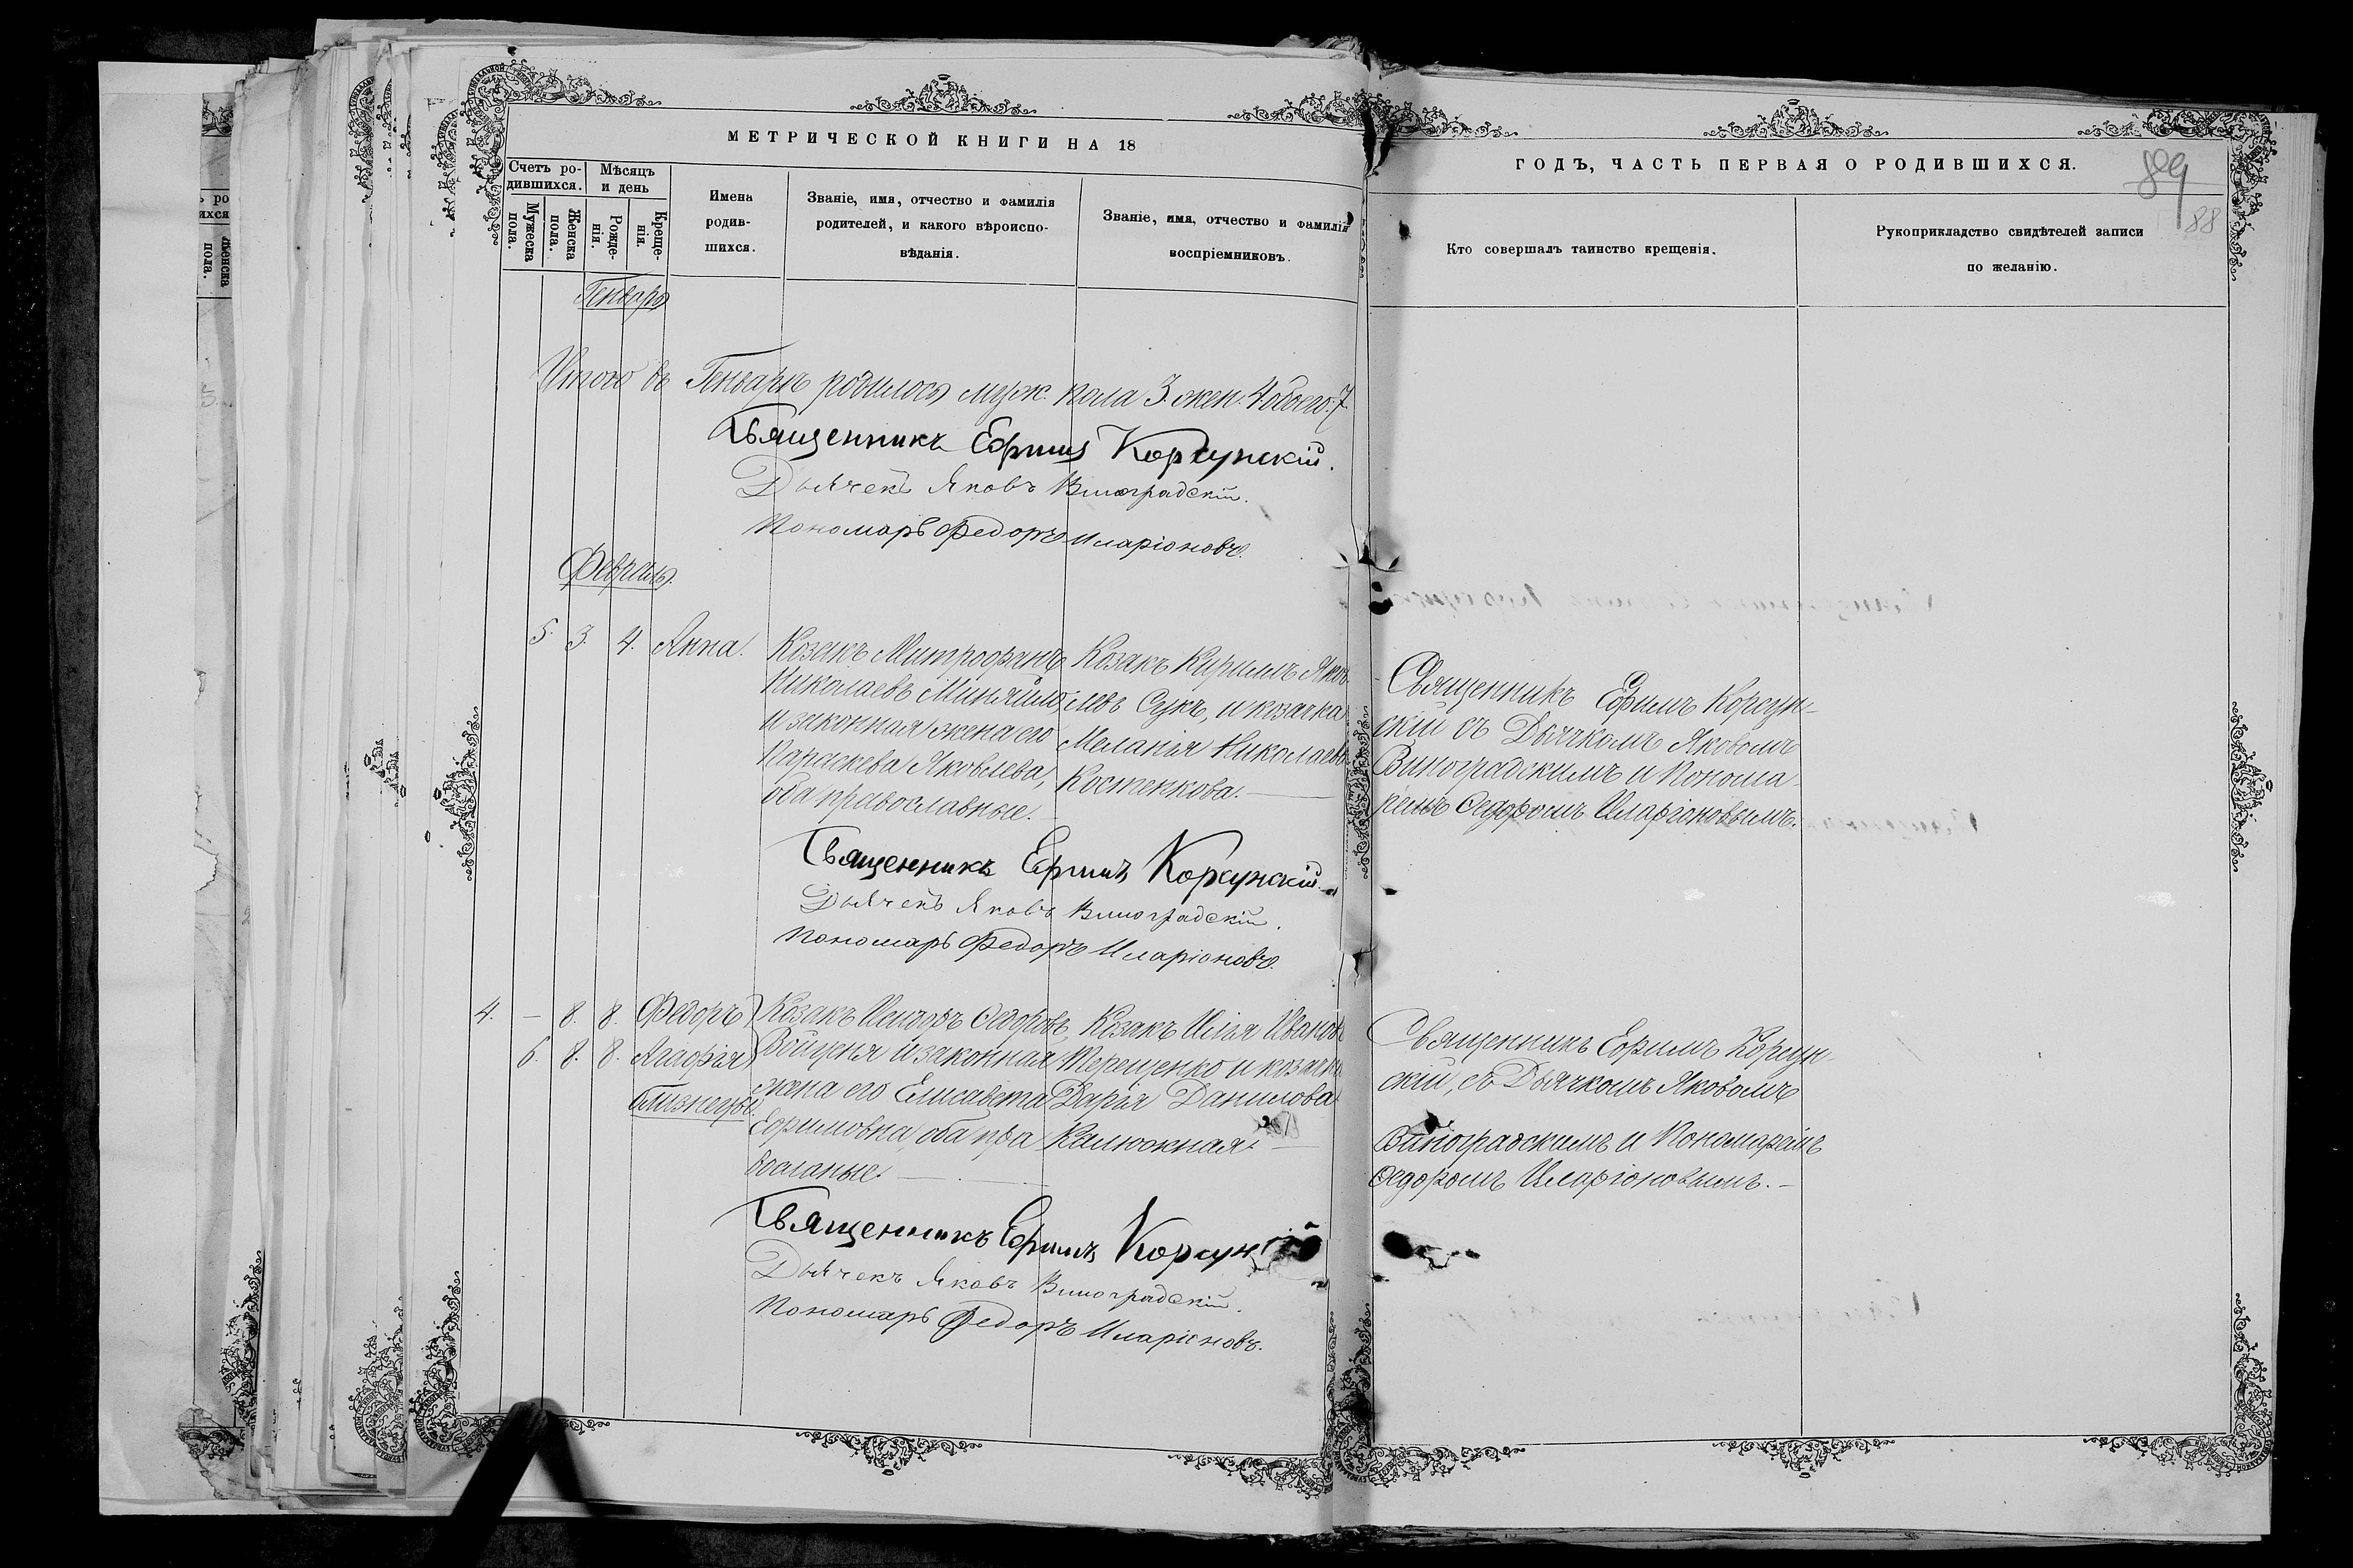 МЕТРИЧЕСКОЙ КНИГИ НА 18
Счетъ ро-
дившихся.
Мѣсяцъ
и день
Мужеска
пола.
Женска
пола.
Рожде-
нія.
Креще-
нія.
Имена
родив-
шихся.
Званіе, имя, отчество и фамилія
родителей, и какого вѣроиспо-
вѣданія.
Званіе, имя, отчество и фамилія
воспріемниковъ.
Генварь
Итого въ Генварѣ родилось муж. пола 3. жен. 4 обоего: 7
Священникъ Ефимъ Корсунскій.
Дьячекъ Яковъ Виноградскій.
Пономарь Федоръ Иларіоновъ.
Февраль.
5. 3. 4. Анна.
Козакъ Митрофанъ
Николаевъ Миняйло
и законная жена его
Параскева Яковлева,
оба православные.
Козакъ Кирилъ Яков
левъ Сукъ, и козачка
Меланія Николаева
Костенкова.
Священникъ Ефимъ Корсунскій.
Дьячекъ Яковъ Виноградскій.
Пономарь Федоръ Иларіоновъ.
4. — 8. 8. Федоръ
6. 8. 8. Агафія
близнецы.
Козакъ Федоровъ
Войценя и законная
жена его Елисавета
Ефимовна, оба пра
вославные.
Козакъ Илія Ивановъ
Терещенко и козачка
Дарія Данилова
Калюжная.
Священникъ Ефимъ Корсунскій
Дьячекъ Яковъ Виноградскій.
Пономарь Федоръ Иларіоновъ.
ГОДЪ, ЧАСТЬ ПЕРВАЯ О РОДИВШИХСЯ.
89
88
Кто совершалъ таинство крещенія.
Рукоприкладство свидѣтелей записи
по желанію.
Священникъ Ефимъ Корсун-
скій съ Дьячкомъ Яковомъ
Виноградскимъ и Понома-
ремъ Ѳедоромъ Иларіоновымъ.
Священникъ Ефимъ Корсун-
скій, съ Дьячкомъ Яковомъ
Виноградскимъ и Пономаремъ
Ѳедоромъ Иларіоновымъ.
ъ ро
ихся
Женска
пола.